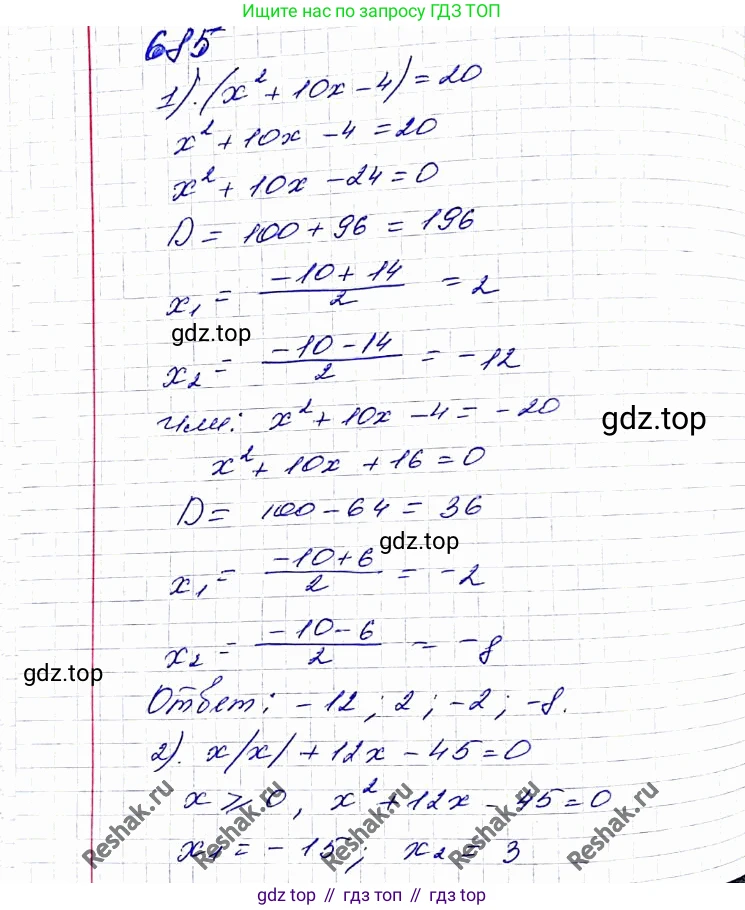 Ищите нас по запросу ГДЗ ТОП
685
1). (x² + 10x - 4) = 20
x² + 10x - 4 = 20
x² + 10x - 24 = 0
D = 100 + 96 = 196
x₁ = (-10 + 14)/2 = 2
gdz.top
x₂ = (-10 - 14)/2 = -12
Или: x² + 10x - 4 = -20
gdz.top
x² + 10x + 16 = 0
D = 100 - 64 = 36
gdz.top
x₁ = (-10 + 6)/2 = -2
x₂ = (-10 - 6)/2 = -8
gdz.top
Ответ: -12; 2; -2; -8.
2). x/x/ + 12x - 45 = 0
x ⩾ 0, x² + 12x - 45 = 0
x₁ = -15; x₂ = 3
Reshak.ru
Reshak.ru
Reshak.ru
Reshak.ru
gdz топ // гдз топ // gdz.top